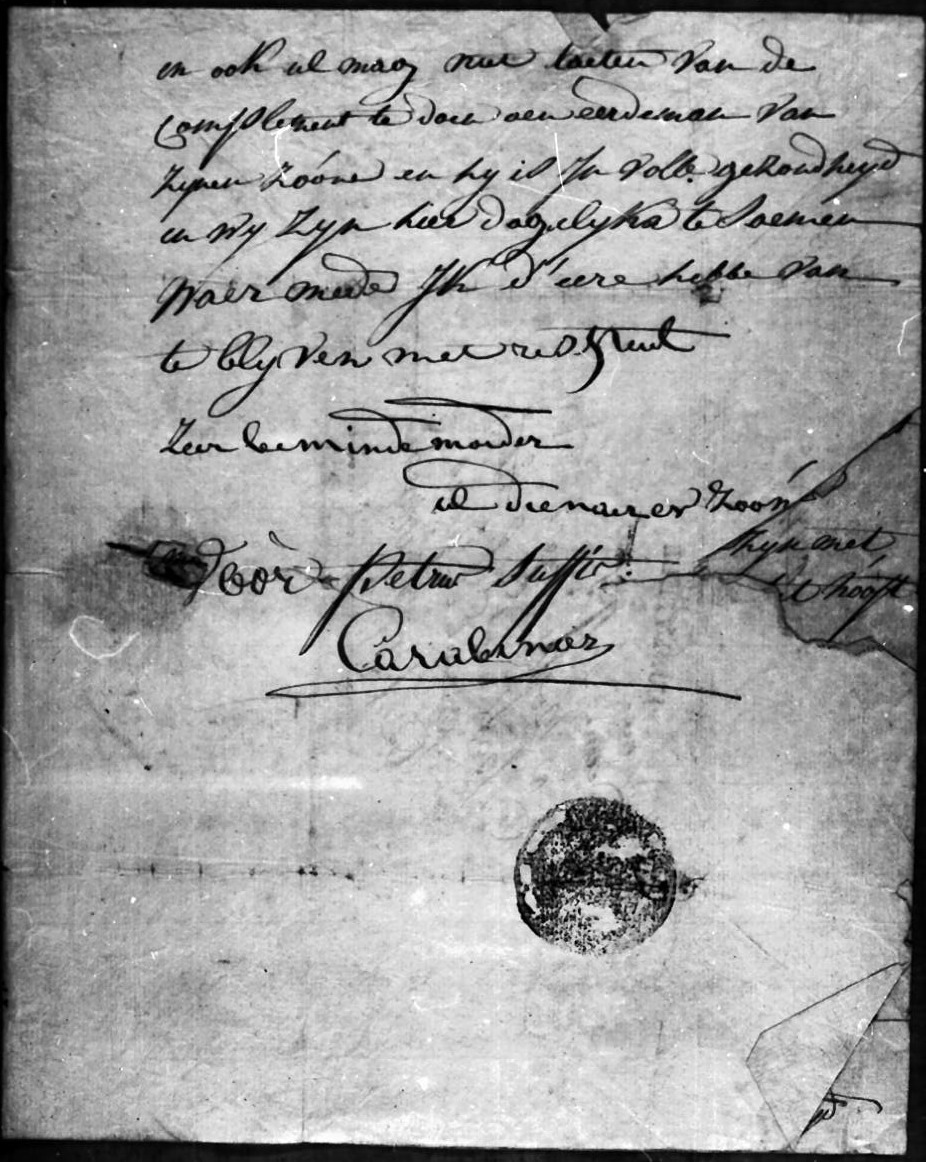 en ook ul mag niet laeten van de
Complement te doen aen eerdeman van
Zynen Zoóne en hy is In volle gezondheyd
en Wy Zyn hier dagelyks te Saemen
Waer mede Ik d'eere hebbe van
te blyven met respeckt
Zeer beminde moeder
ul dienaer en Zoon
Door Petrus
Zyn met
t hooft
Carabenier